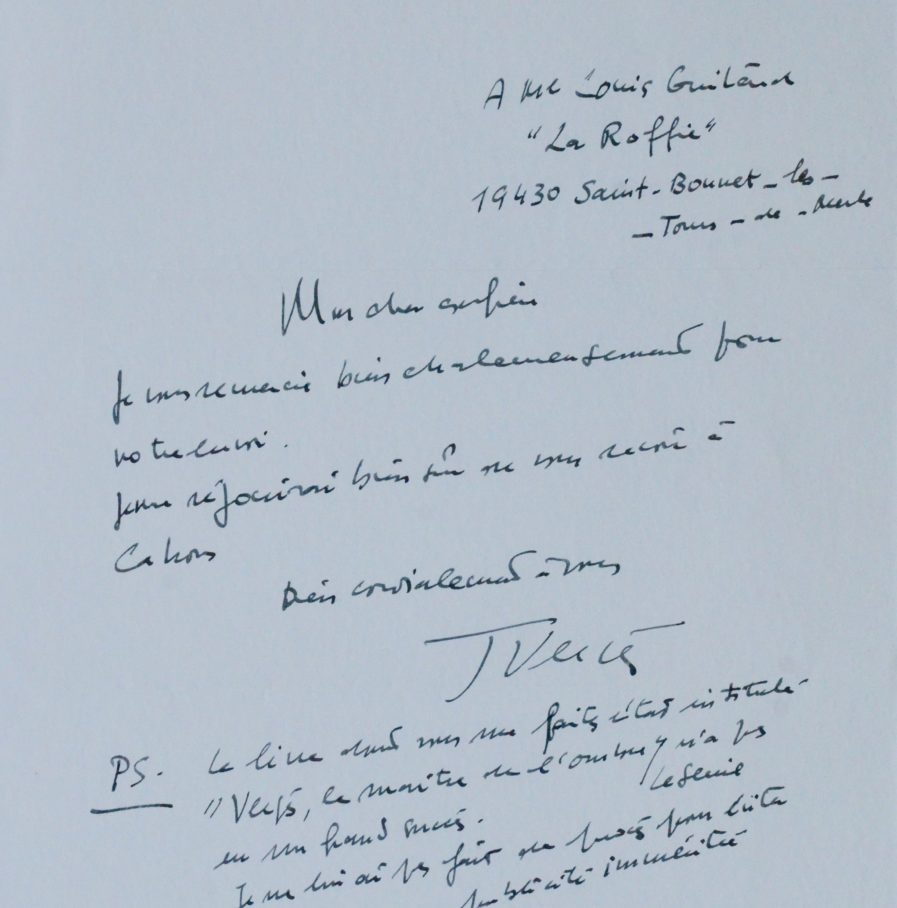 A Me Louis Guitard
"La Roffie"
19430 Saint-Bonnet-les-
-Tours-de-Merle
Mon cher confrère
Je vous remercie bien chaleureusement pour
votre envoi.
Je me réjouirai bien sûr de vous revoir à
Cahors
Bien cordialement à vous
JVergès
PS. Le livre dont vous me faites état intitulé
"Vergès, le maître de l'ombre" n'a pas
eu un grand succès.
Je ne lui ai pas fait de procès pour éviter
publicité imméritée